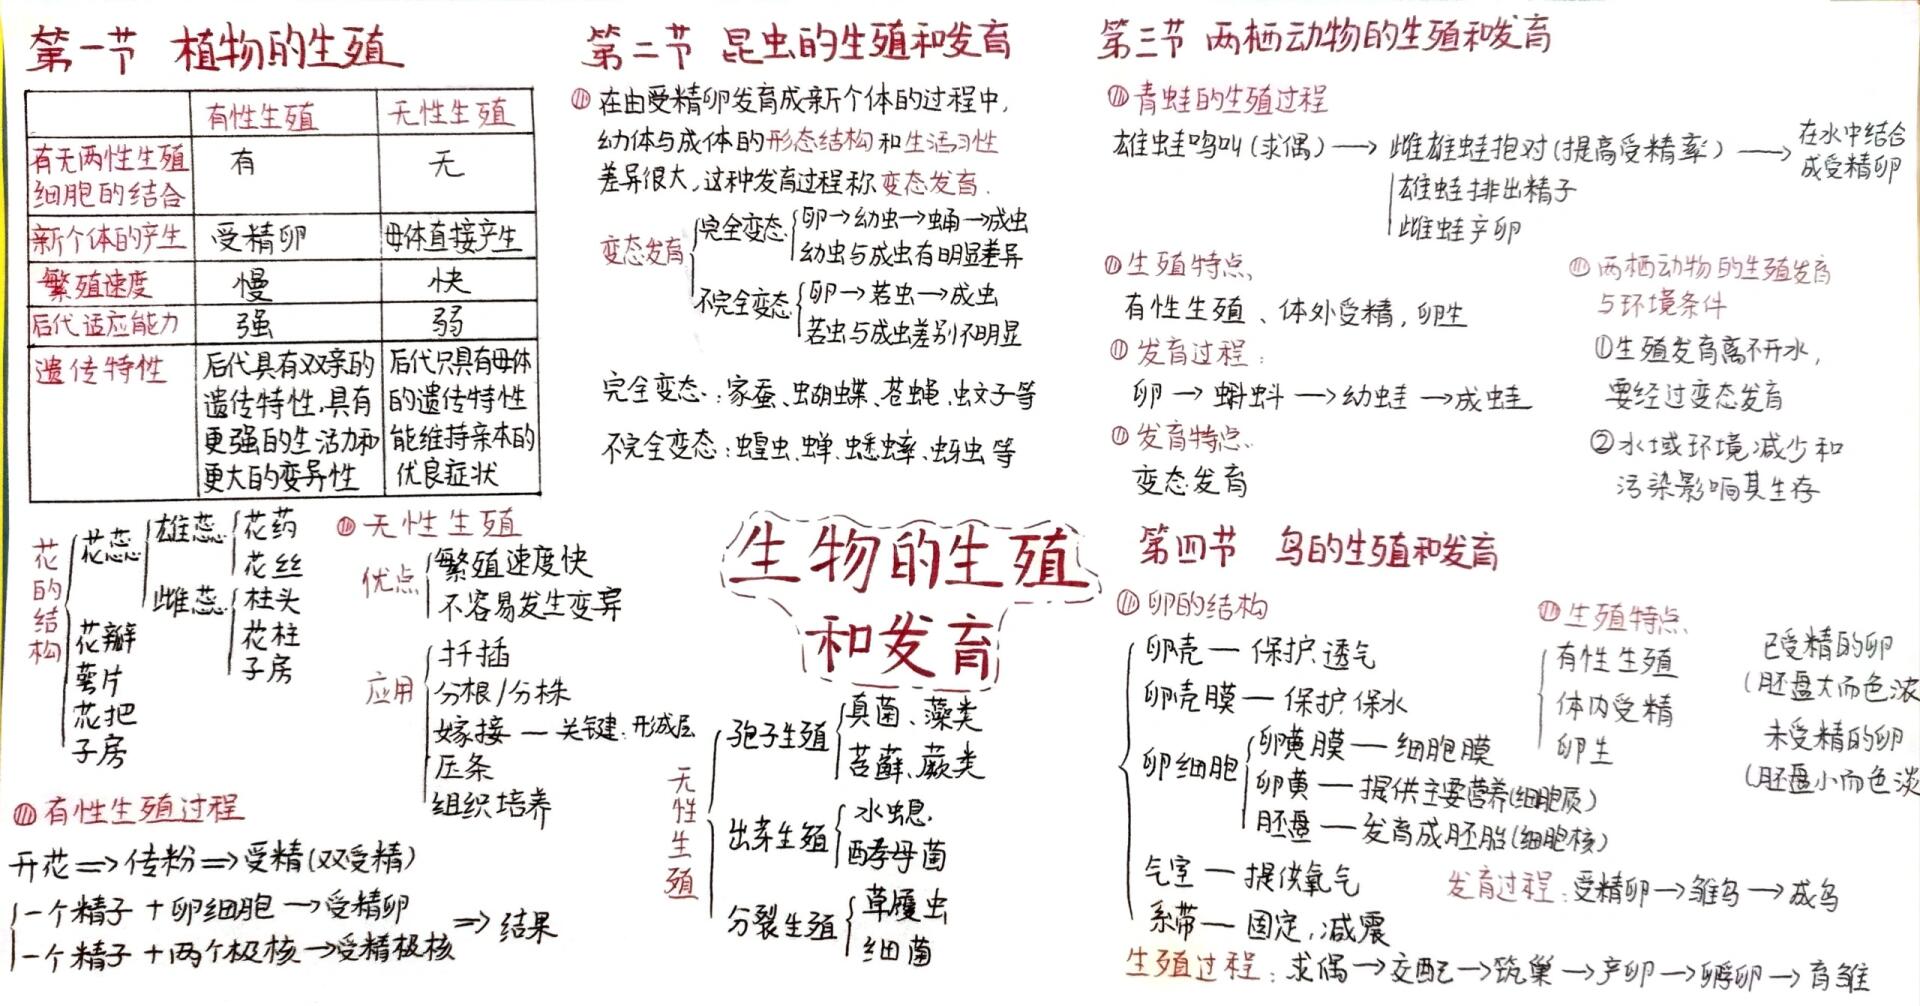 第一节 植物的生殖
有性生殖 无性生殖
有无两性生殖细胞的结合 有 无
新个体的产生 受精卵 母体直接产生
繁殖速度 慢 快
后代适应能力 强 弱
遗传特性
后代具有双亲的
遗传特性,具有
更强的生活力和
更大的变异性
后代只具有母体
的遗传特性
能维持亲本的
优良症状
花的结构
花蕊
雄蕊
花药
花丝
雌蕊
柱头
花柱
子房
花瓣
萼片
花把
子房
① 无性生殖
优点
繁殖速度快
不容易发生变异
应用
扦插
分根/分株
嫁接—关键:形成层
压条
组织培养
① 有性生殖过程
开花⇒传粉⇒受精(双受精)
一个精子+卵细胞→受精卵
一个精子+两个极核→受精极核
⇒结果
第二节 昆虫的生殖和发育
① 在由受精卵发育成新个体的过程中,
幼体与成体的形态结构和生活习性
差异很大,这种发育过程称变态发育.
变态发育
完全变态
卵→幼虫→蛹→成虫
幼虫与成虫有明显差异
不完全变态
卵→若虫→成虫
若虫与成虫差别不明显
完全变态:家蚕、蝴蝶、苍蝇、蚊子等
不完全变态:蝗虫、蝉、蟋蟀、蚜虫等
生物的生殖
和发育
无性生殖
孢子生殖
真菌、藻类
苔藓、蕨类
出芽生殖
水螅.
酵母菌
分裂生殖
草履虫
细菌
第三节 两栖动物的生殖和发育
① 青蛙的生殖过程
雄蛙鸣叫(求偶)→雌雄蛙抱对(提高受精率)→在水中结合
成受精卵
雄蛙排出精子
雌蛙产卵
① 生殖特点、
有性生殖、体外受精,卵生
① 发育过程:
卵→蝌蚪→幼蛙→成蛙
① 发育特点.
变态发育
① 两栖动物的生殖发育
与环境条件
①生殖发育离不开水,
要经过变态发育
②水域环境减少和
污染影响其生存
第四节 鸟的生殖和发育
① 卵的结构
卵壳—保护.透气
卵壳膜—保护.保水
卵细胞
卵黄膜—细胞膜
卵黄—提供主要营养(细胞质)
胚盘—发育成胚胎(细胞核)
气室—提供氧气
系带—固定,减震
① 生殖特点、
有性生殖
体内受精
卵生
已受精的卵
(胚盘大而色浓
未受精的卵
(胚盘小而色淡
发育过程:受精卵→雏鸟→成鸟
生殖过程:求偶→交配→筑巢→产卵→孵卵→育雏